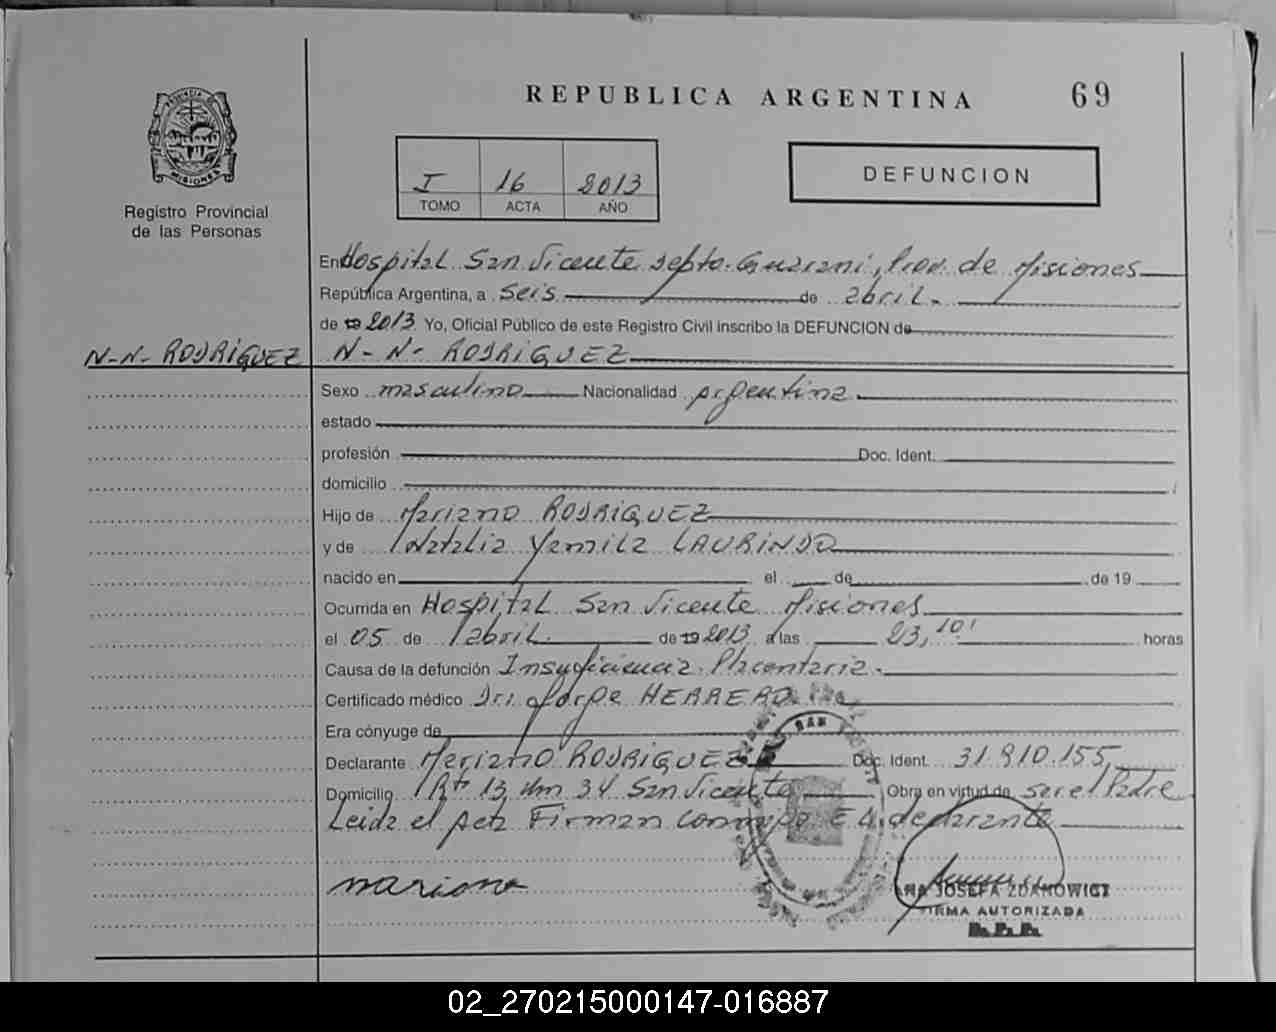 REPUBLICA ARGENTINA 69
PROVINCIA DE MISIONES
Registro Provincial
de las Personas
I 16 2013
TOMO ACTA AÑO
DEFUNCION
En Hospital San Vicente Depto. Guarani, Prov. de Misiones
República Argentina, a seis de abril.
de 19 2013 Yo, Oficial Público de este Registro Civil inscribo la DEFUNCION de
N-N- RODRIGUEZ N-N- RODRIGUEZ
Sexo masculino Nacionalidad argentina
estado
profesión Doc. Ident.
domicilio
Hijo de Mariano RODRIGUEZ
y de Natalia Yamila LAURINDO
nacido en el de de 19
Ocurrida en Hospital San Vicente Misiones
el 05 de abril. de 19 2013 a las 23,10' horas
Causa de la defunción Insuficiencia Placentaria.
Certificado médico Dr. Jorge HERRERO
Era cónyuge de
Declarante Mariano RODRIGUEZ Doc. Ident. 31.910.155
Domicilio Rta 13 km 34 San Vicente Obra en virtud de ser el Padre
Leida el acta Firman conmigo El declarante
mariano
ANA JOSEFA ZDANOWICZ
FIRMA AUTORIZADA
R.P.P.
02_270215000147-016887